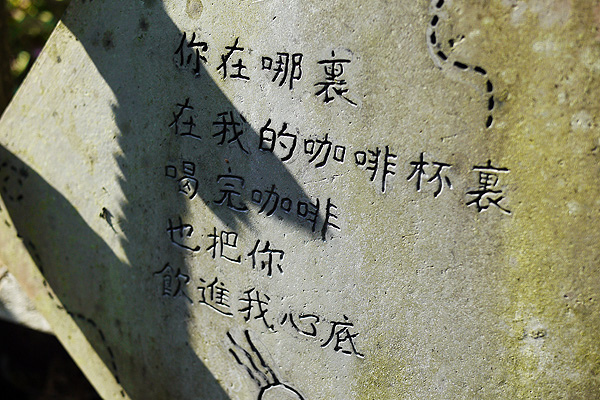 你在哪裏
在我的咖啡杯裏
喝完咖啡
也把你
飲進我心底